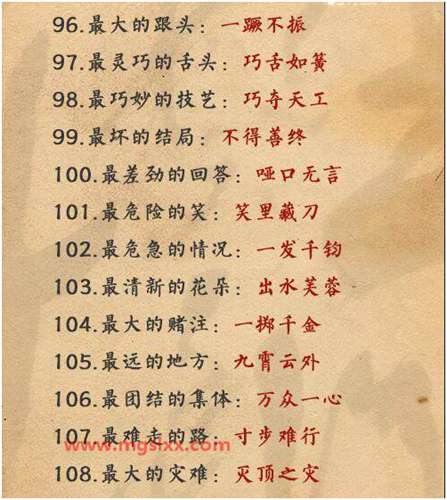 96.最大的跟头：一蹶不振
97.最灵巧的舌头：巧舌如簧
98.最巧妙的技艺：巧夺天工
99.最坏的结局：不得善终
100.最差劲的回答：哑口无言
101.最危险的笑：笑里藏刀
102.最危急的情况：一发千钧
103.最清新的花朵：出水芙蓉
104.最大的赌注：一掷千金
105.最远的地方：九霄云外
106.最团结的集体：万众一心
107.最难走的路：寸步难行
www.mgslxx.com
108.最大的灾难：灭顶之灾